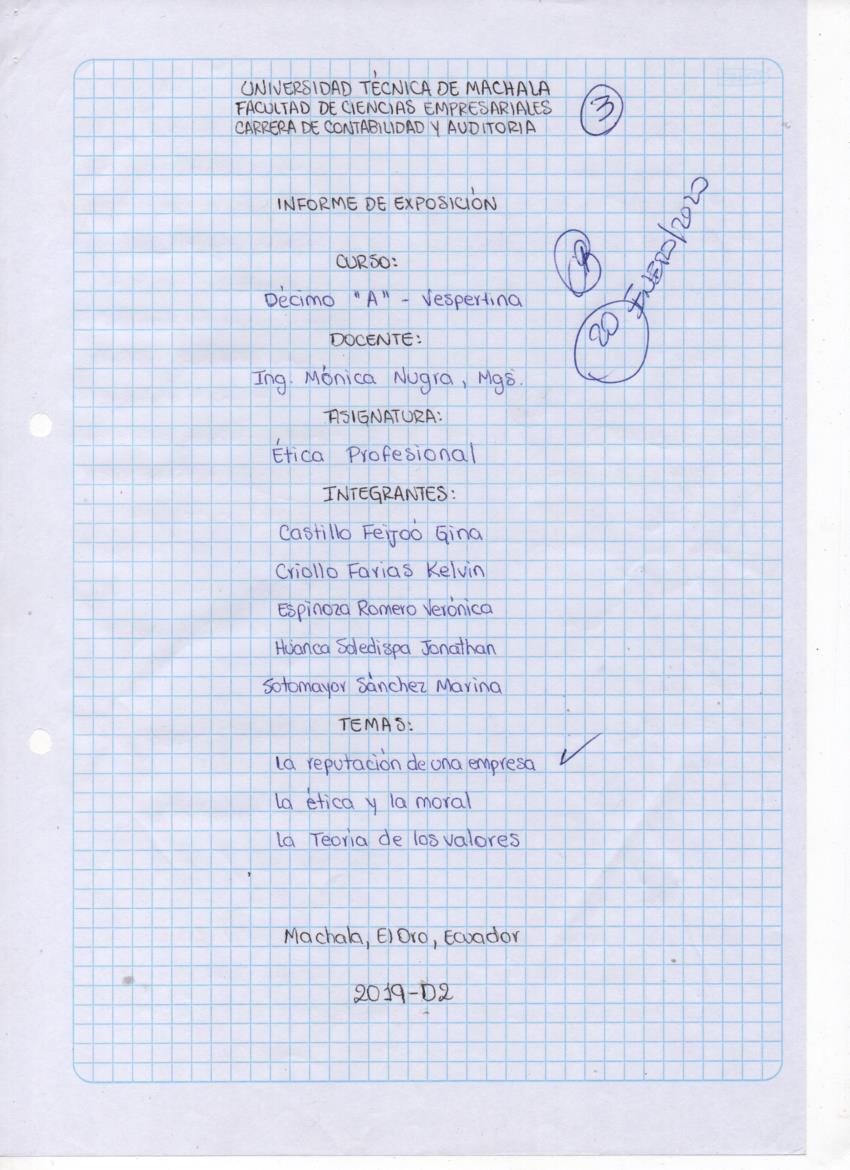 UNIVERSIDAD TÉCNICA DE MACHALA
FACULTAD DE CIENCIAS EMPRESARIALES
CARRERA DE CONTABILIDAD Y AUDITORIA
3
INFORME DE EXPOSICIÓN
CURSO:
Décimo "A" - Vespertina
20 ENERO/2020
DOCENTE:
Ing. Mónica Nugra, Mgs.
ASIGNATURA:
Ética Profesional
INTEGRANTES:
Castillo Feijoó Gina
Criollo Farias Kelvin
Espinoza Romero Verónica
Huanca Soledispa Jonathan
Sotomayor Sánchez Marina
TEMAS:
La reputación de una empresa
La ética y la moral
La Teoria de los valores
Machala, El Oro, Ecuador
2019-D2